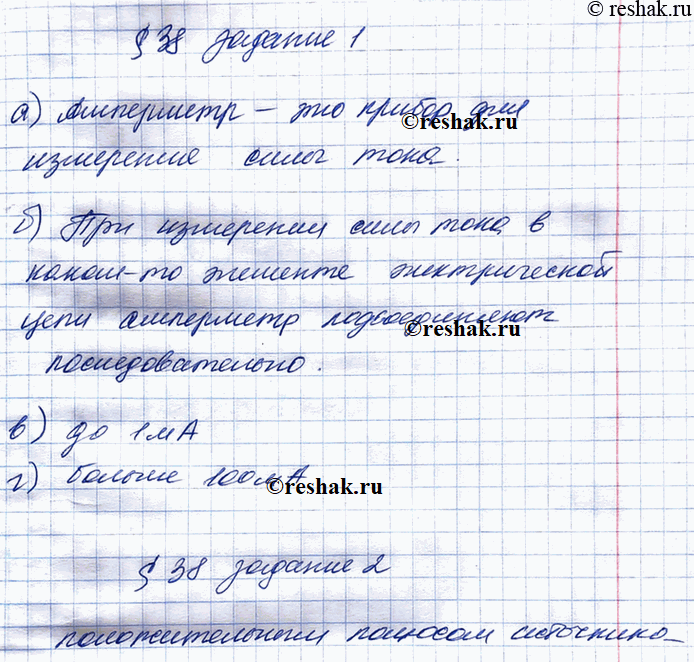 © reshak.ru
§ 38 задание 1
а) Амперметр – это прибор для
©reshak.ru
измерения силы тока.
б) При измерении силы тока в
каком-то элементе электрической
цепи амперметр подсоединяют
©reshak.ru
последовательно.
в) до 1мА
г) больше 100мА
©reshak.ru
§ 38 задание 2
положительным полюсом источника-